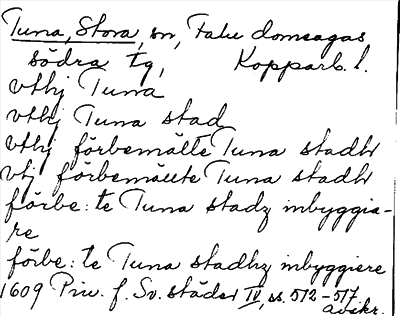 Tuna, Stora, sn, Falu domsagas
södra tg, Kopparb. l.
vthj Tuna
vthj Tuna stad
vthj förbemälte Tuna stadh
vhj förbemälte Tuna stadh
förbe: te Tuna stadz inbyggia-
re
förbe: te Tuna stadhz inbyggiere
1609 Priv. f. Sv. städer IV, ss. 512-517.
avskr.